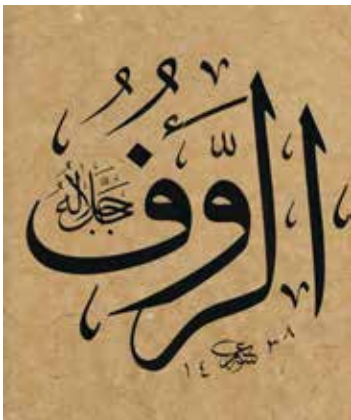 الرَّؤُفُ
جَلَّ جَلَالُهُ
١٤٣٨